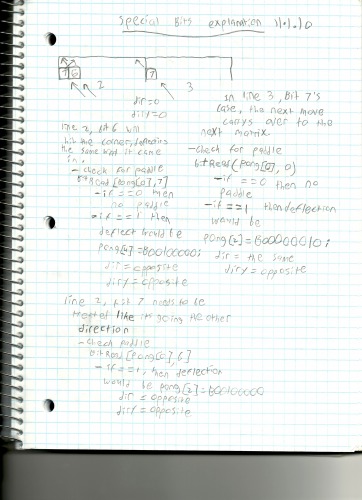 Special Bits explanation 11.1.10
7 6 2 7 3
dir=0
diry=0
line 2, bit 6 will
hit the corner, deflects
the same way it came
in.
- check for paddle
bitRead [pong[0], 7]
- if == 0 then
no paddle
- if == 1 then
deflect would be
pong[2]=B00100000;
dir = opposite
diry = opposite
line 2, bit 7 needs to be
treated like its going the other
direction
- check paddle
bitRead [pong[0], 6]
- if == 1, then deflection
would be pong[2]=B00100000
dir = opposite
diry = opposite
In line 3, Bit 7's
case, the next move
carrys over to the
next matrix.
- check for paddle
bitRead(pong[2], 0)
- if == 0 then no
paddle
- if == 1 then deflection
would be
pong[2]=B00000010;
dir = the same
diry = opposite